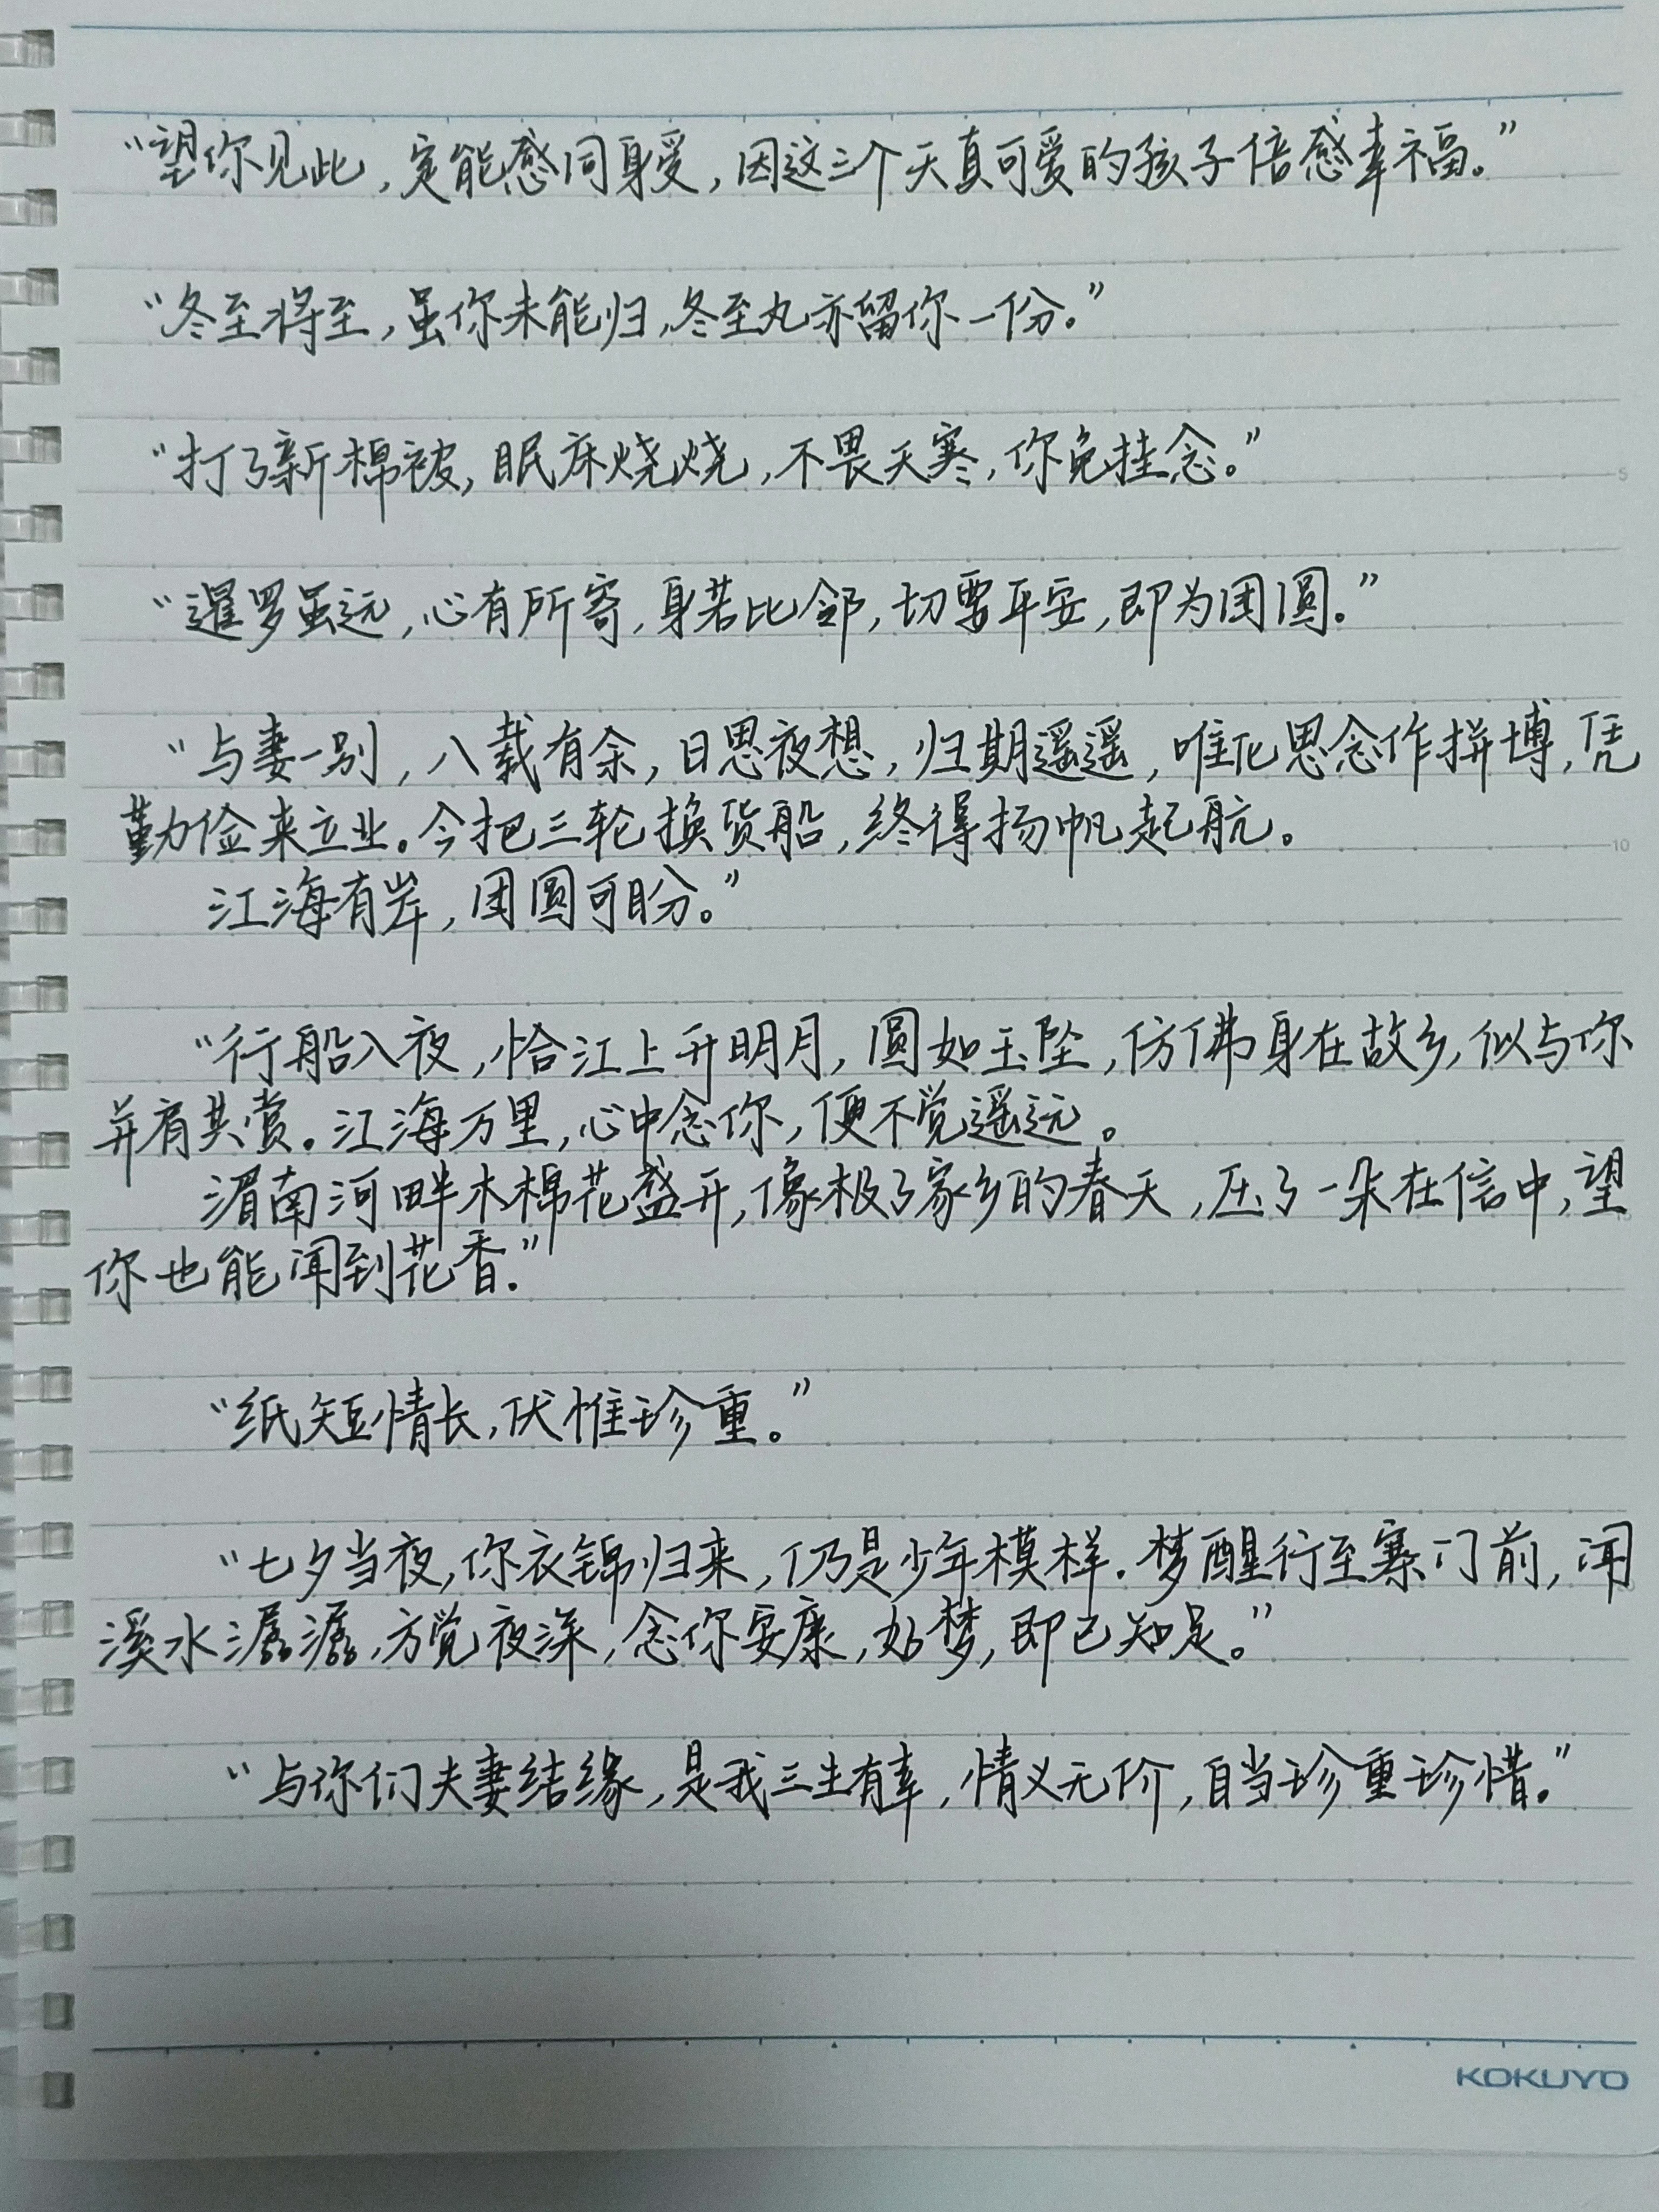 “望你见此，定能感同身受，因这三个天真可爱的孩子倍感幸福。”
“冬至将至，虽你未能归，冬至丸亦留你一份。”
“打了新棉被，眠床烧烧，不畏天寒，你免挂念。”
“暹罗虽远，心有所寄，身若比邻，切要平安，即为团圆。”
“与妻一别，八载有余，日思夜想，归期遥遥，唯化思念作拼博，凭
勤俭来立业。今把三轮换货船，终得扬帆起航。
江海有岸，团圆可盼。”
“行船入夜，恰江上升明月，圆如玉坠，仿佛身在故乡，似与你
并肩共赏。江海万里，心中念你，便不觉遥远。
湄南河畔木棉花盛开，像极了家乡的春天，压了一朵在信中，望
你也能闻到花香.”
“纸短情长，伏惟珍重。”
“七夕当夜，你衣锦归来，仍是少年模样.梦醒行至寨门前，闻
溪水潺潺，方觉夜深，念你安康，好梦，即已知足。”
“与你们夫妻结缘，是我三生有幸，情义无价，自当珍重珍惜。”
5
10
KOKUYO